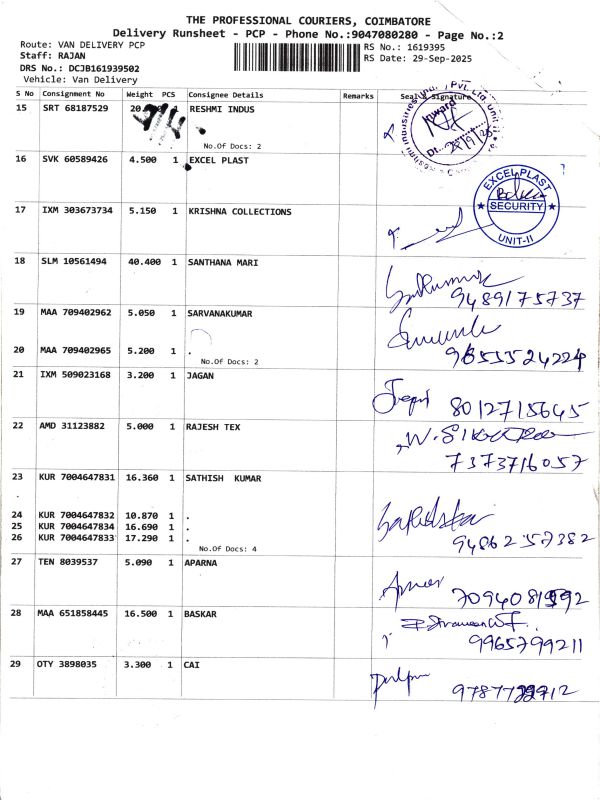 THE PROFESSIONAL COURIERS, COIMBATORE
Delivery Runsheet - PCP - Phone No.:9047080280 - Page No.:2
Route: VAN DELIVERY PCP
Staff: RAJAN
DRS No.: DCJB161939502
Vehicle: Van Delivery
RS No.: 1619395
RS Date: 29-Sep-2025
S No Consignment No Weight PCS Consignee Details Remarks Seal & Signature
15 SRT 68187529 20. 1 RESHMI INDUS
No.Of Docs: 2
Inward
16 SVK 60589426 4.500 1 EXCEL PLAST
EXCEL PLAST
SECURITY
UNIT-II
17 IXM 303673734 5.150 1 KRISHNA COLLECTIONS
18 SLM 10561494 40.400 1 SANTHANA MARI
9489175737
19 MAA 709402962 5.050 1 SARVANAKUMAR
20 MAA 709402965 5.200 1 .
No.Of Docs: 2
21 IXM 509023168 3.200 1 JAGAN
8012715645
22 AMD 31123882 5.000 1 RAJESH TEX
7373716057
23 KUR 7004647831 16.360 1 SATHISH KUMAR
24 KUR 7004647832 10.870 1 .
25 KUR 7004647834 16.690 1 .
26 KUR 7004647833 17.290 1 .
No.Of Docs: 4
9486257382
27 TEN 8039537 5.090 1 APARNA
28 MAA 651858445 16.500 1 BASKAR
9965799211
29 OTY 3898035 3.300 1 CAI